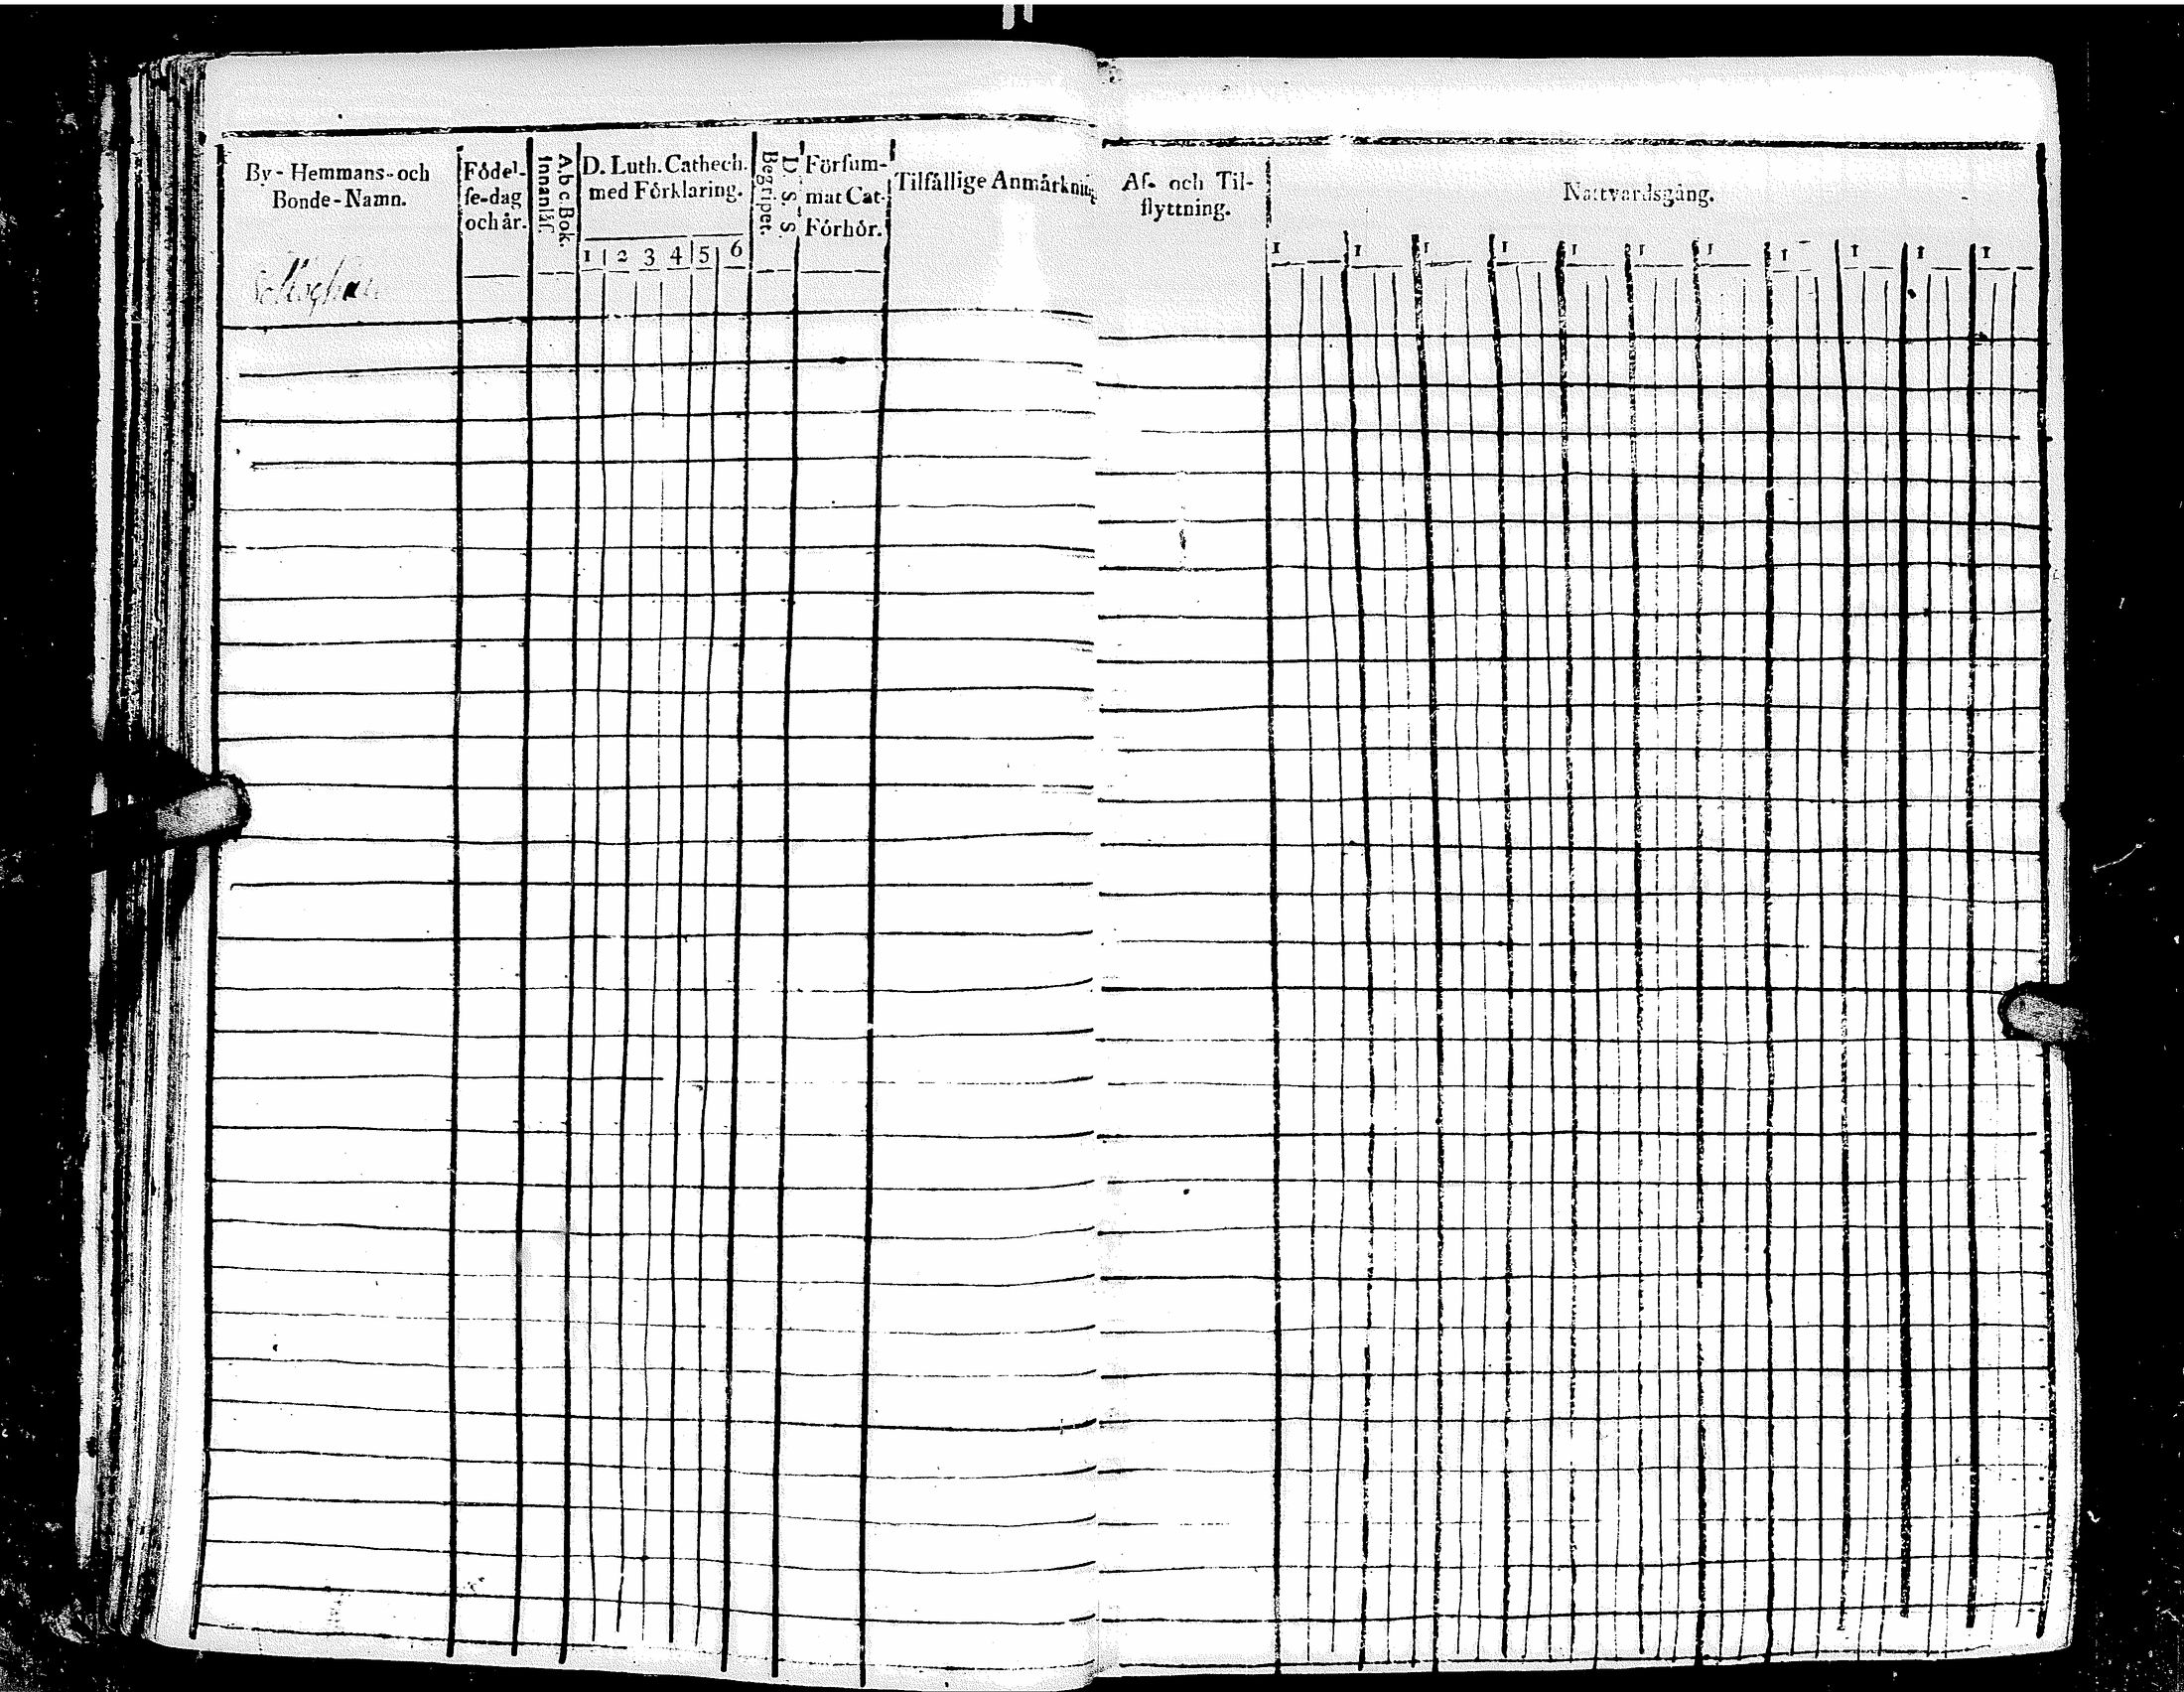 By-Hemmans-och
Bonde-Namn.
Födel-
ſe-dag
och år.
A b c Bok.
Innanläſ.
D. Luth. Cathech.
med Förklaring.
1 2 3 4 5 6
D. S. S.
Begripet.
Förſum-
mat Cat.
Förhör.
Tilfällige Anmärkning
Af- och Til-
flyttning.
Nattvardsgång.
1 1 1 1 1 1 1 1 1 1 1